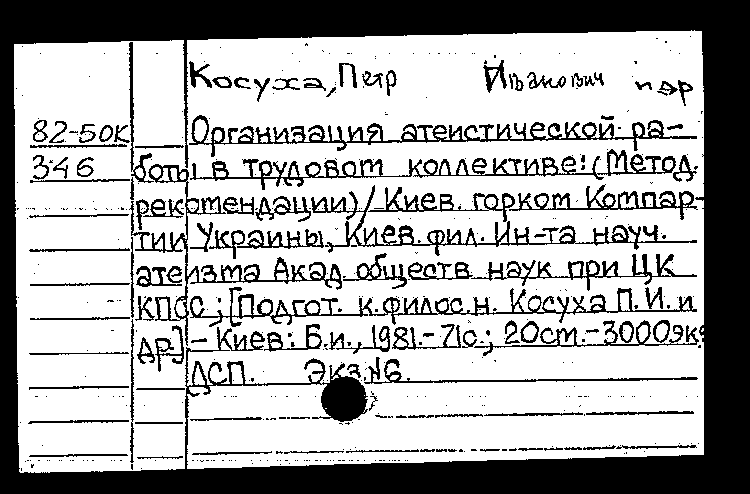 Косуха, Петр Иванович и др
82-50К Организация атеистической ра-
346 боты в трудовом коллективе: (Метод.
рекомендации) / Киев. горком Компар-
тии Украины, Киев. фил. Ин-та науч.
атеизма Акад. обществ наук при ЦК
КПСС; [Подгот. к.филос.н. Косуха П. И. и
др.] - Киев: Б.и., 1981.- 71с.; 20см.- 3000экз.
ДСП. Экз.№6.